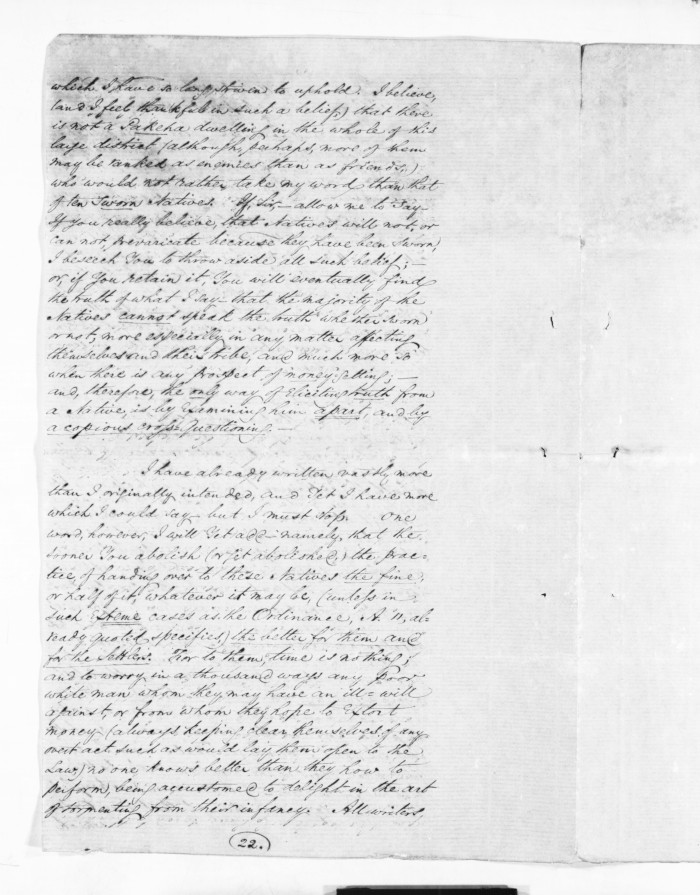 which I have so long striven to uphold. I believe,
(and I feel thankful in such a belief,) that there
is not a Pakeha dwelling in the whole of this
large district (although, perhaps, more of them
may be ranked as enemies than as friends,)
who would not rather take my word than that
of ten Sworn Natives. If Sir,—allow me to say—
If you really believe, that Natives will not, or
can not, prevaricate because they have been Sworn,
I beseech You to throw aside all such belief;—
or, if You retain it, You will eventually find
the truth of what I say—that the majority of the
Natives cannot speak the truth whether Sworn
or not; more especially in any matter affecting
themselves and their tribe, and much more so
when there is any prospect of money getting;—
and, therefore, the only way of Eliciting truth from
a Native, is by Examining him apart, and by
a copious cross-questioning.—
I have already written vastly more
than I originally intended, and Yet I have more
which I could say—but I must stop. One
word, however, I will Yet add—namely, that the
sooner You abolish (or get abolished,) the prac=
tice, of handing over to these Natives the fine,
or half of it, whatever it may be, (unless in
such cases as the Ordinance, al=
ready quoted, specifies,) the better for them and
for the Settlers. For to them, time is nothing;
and to worry in a thousand ways any poor
white man whom they may have an ill=will
against, or from whom they hope to Extort
money (always keeping clear themselves of any
overt act such as would lay them open to the
Law,) no one knows better than they how to
perform, being accustomed to delight in the art
of tormenting from their infancy. All writers,
22.